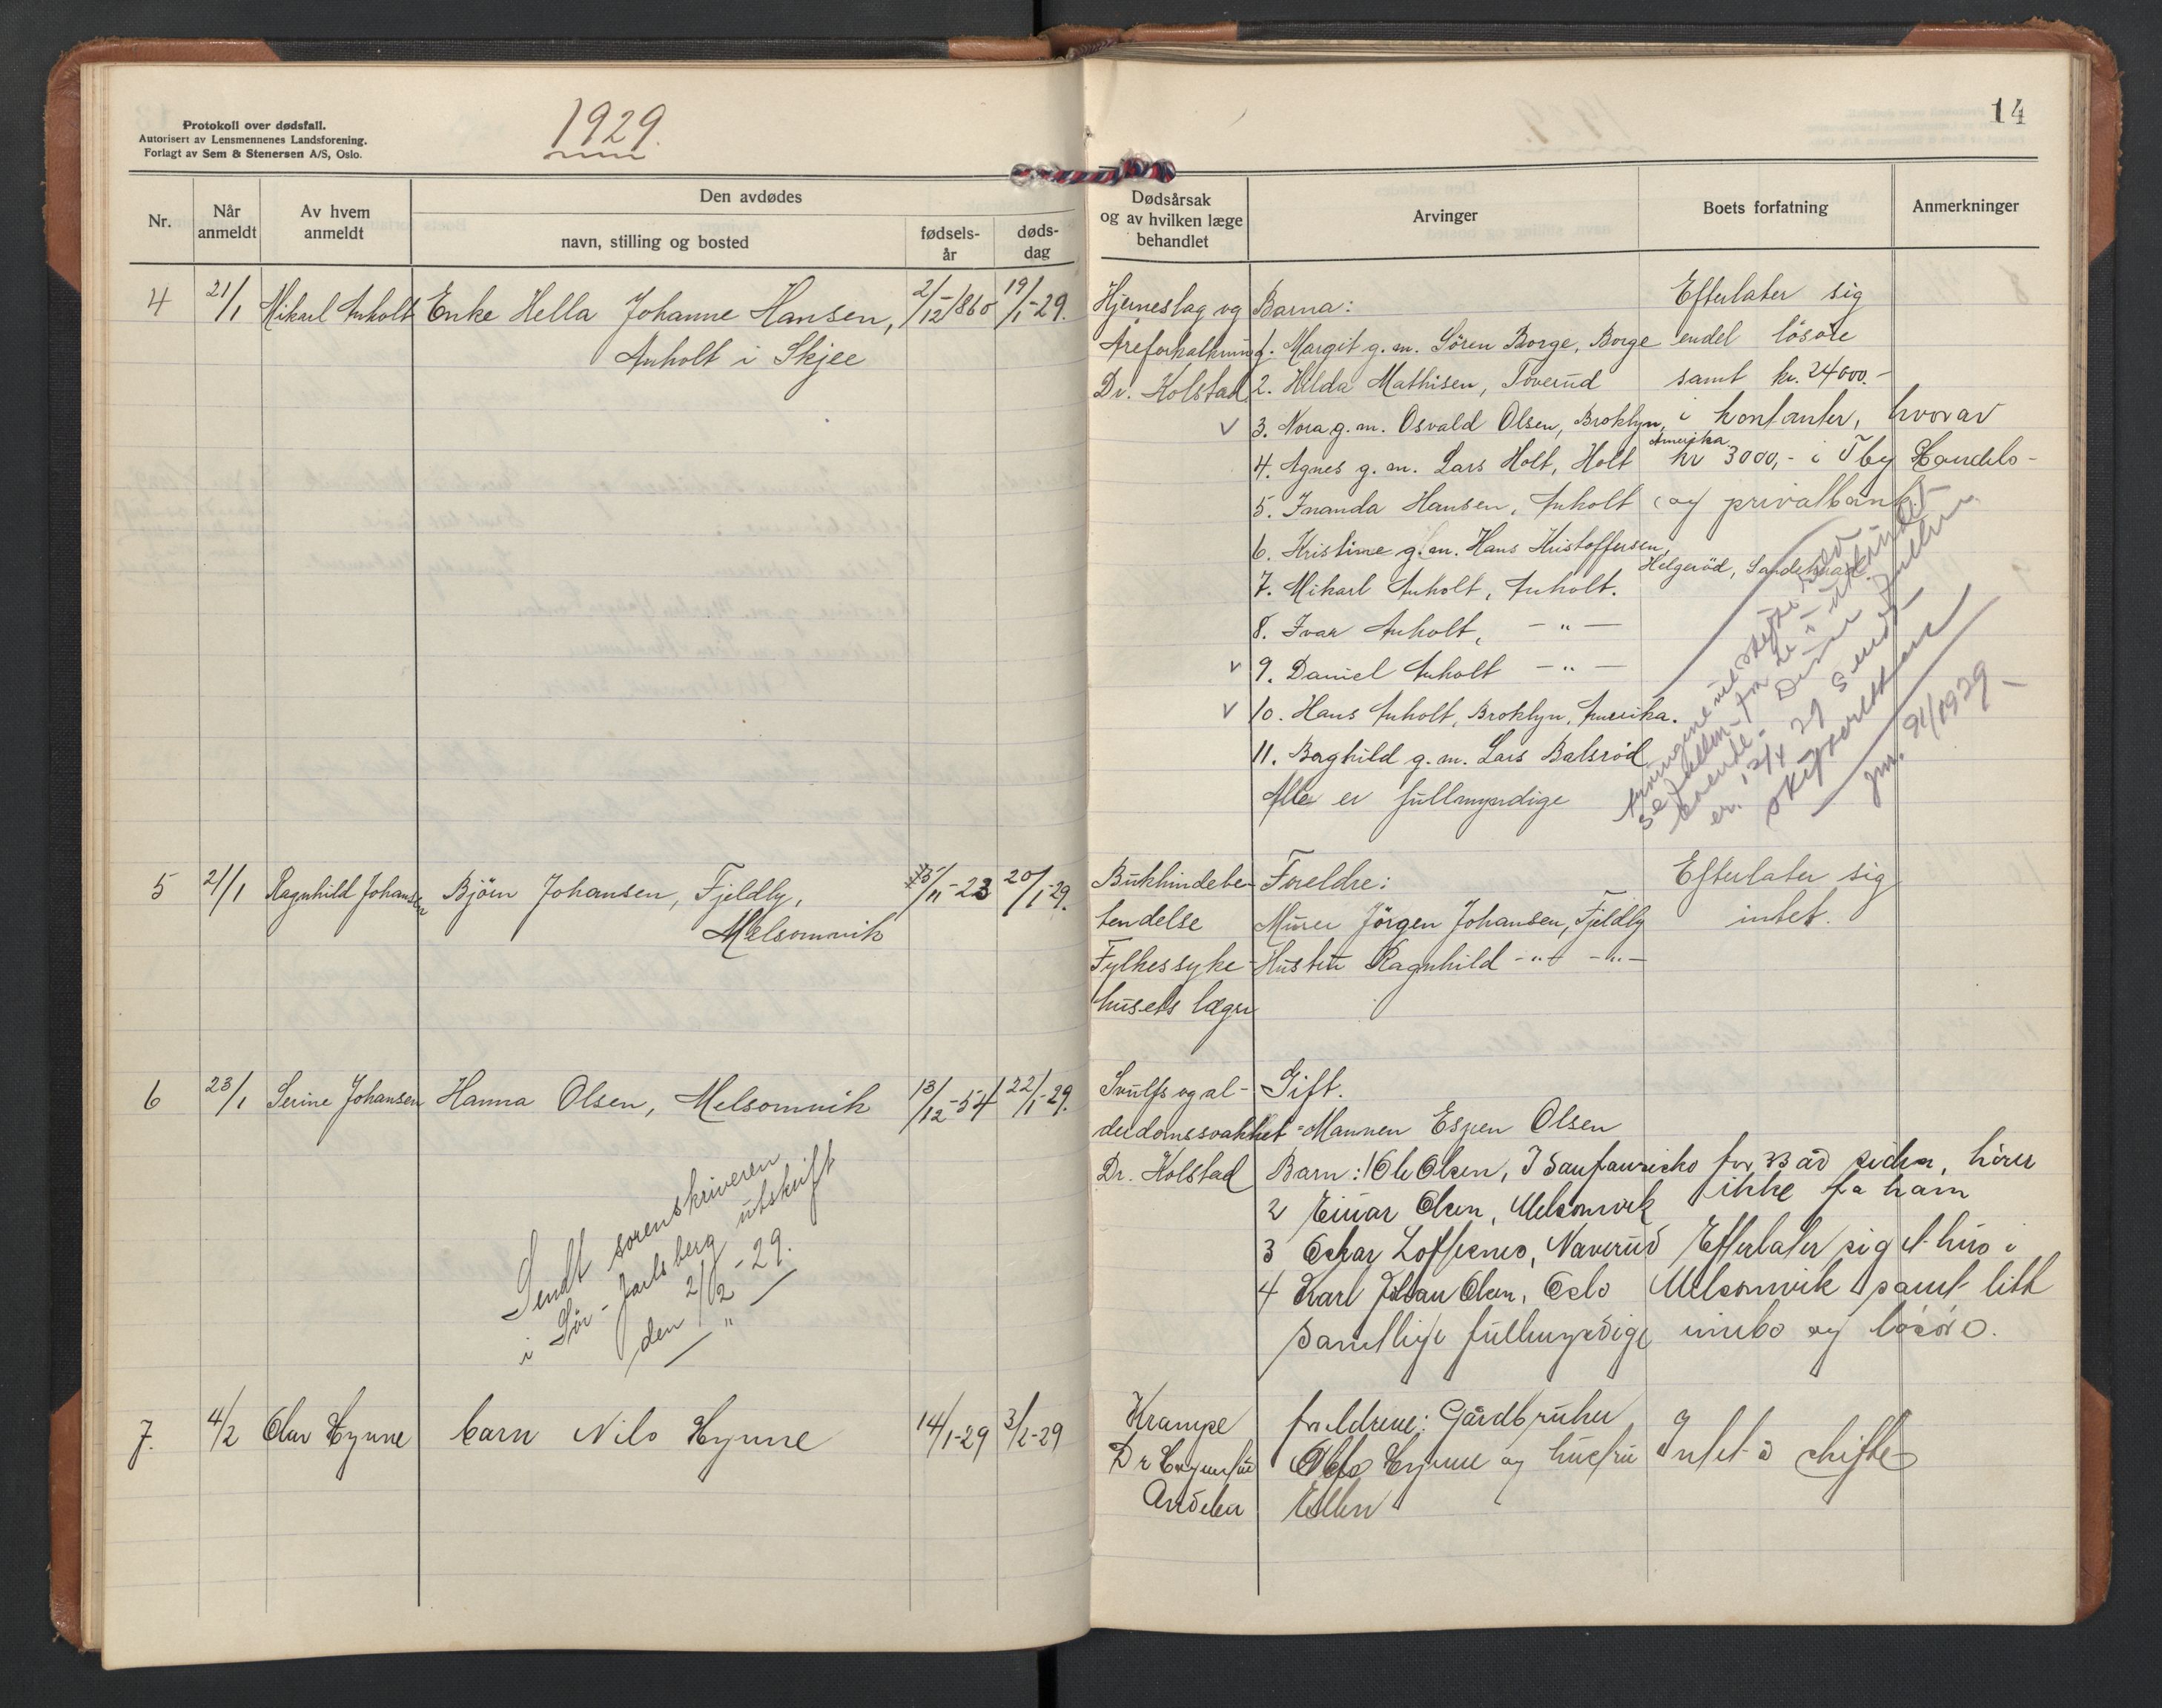 Protokoll over dødsfall.
Autorisert av Lensmennenes Landsforening.
Forlagt av Sem & Stenersen A/S, Oslo.
1929.
14
Nr.
Når anmeldt
Av hvem anmeldt
Den avdødes
navn, stilling og bosted
fødsels-
år
døds-
dag
Dødsårsak
og av hvilken læge
behandlet
Arvinger
Boets forfatning
Anmerkninger
4 21/1 Mikael Anholt Enke Hella Johanne Hansen, 2/12-1860 19/1-29.
Anholt i Skjee
Hjerneslag og
Åreforkalkning
Dr. Kolstad
Barna:
1. Margit g. m. Sören Borge, Borge
2. Hilda Mathisen, Toverud
✓ 3. Nora g. m. Osvald Olsen, Broklyn,
Amerika
4. Agnes g. m. Lars Holt, Holt
5. Inanda Hansen, Anholt
6. Kristine g. m. Hans Kristoffersen,
Helgeröd, Sandeherad
7. Mikael Anholt, Anholt.
8. Ivar Anholt, - " -
✓ 9. Daniel Anholt - " -
✓ 10. Hans Anholt, Broklyn, Amerika.
11. Borghild g. m. Lars Balsröd
Alle er fullmyndige
Efterlater sig
endel lösöre
samt kr. 24000.-
i kontanter, hvorav
kr 3000,- i Tbg Handels-
og privatbank.
Arvingene vil skifte selv
12/4 29 sendt
skifteretten
jnr. 91/1929
5 21/1 Ragnhild Johansen Björn Johansen, Fjeldly, 15/11-23 20/1-29.
Melsomvik
Bukhindebe-
tendelse
Fylkessyke-
husets læger
Foreldre:
Murer Jörgen Johansen, Fjeldly
Hustru Ragnhild - " - - " -
Efterlater sig
intet.
6 23/1 Serine Johansen Hanna Olsen, Melsomvik 13/12-54 22/1-29.
Sendt sorenskriveren
i Sör-Jarlsberg utskrift
den 2/2-29.
- " -
Svulst og al-
derdomssvakhet
Dr. Kolstad
Gift.
Mannen Espen Olsen
Barn: 1 Ole Olsen, I Sanfransisko for 33 år siden, hörer
ikke fra ham
2 Einar Olsen, Melsomvik
3 Oskar Loffsnes, Naverud
4 Karl Johan Olsen, Oslo
Samtlige fullmyndige
Efterlater sig et hus i
Melsomvik samt litt
innbo og lösöre.
7. 4/2 Olav Hynne barn Nils Hynne 14/1-29 3/2-29
Krampe
Dr
Andebu
foreldrene: Gårdbruker
Olav Hynne og husfru
Ellen
Intet å skifte